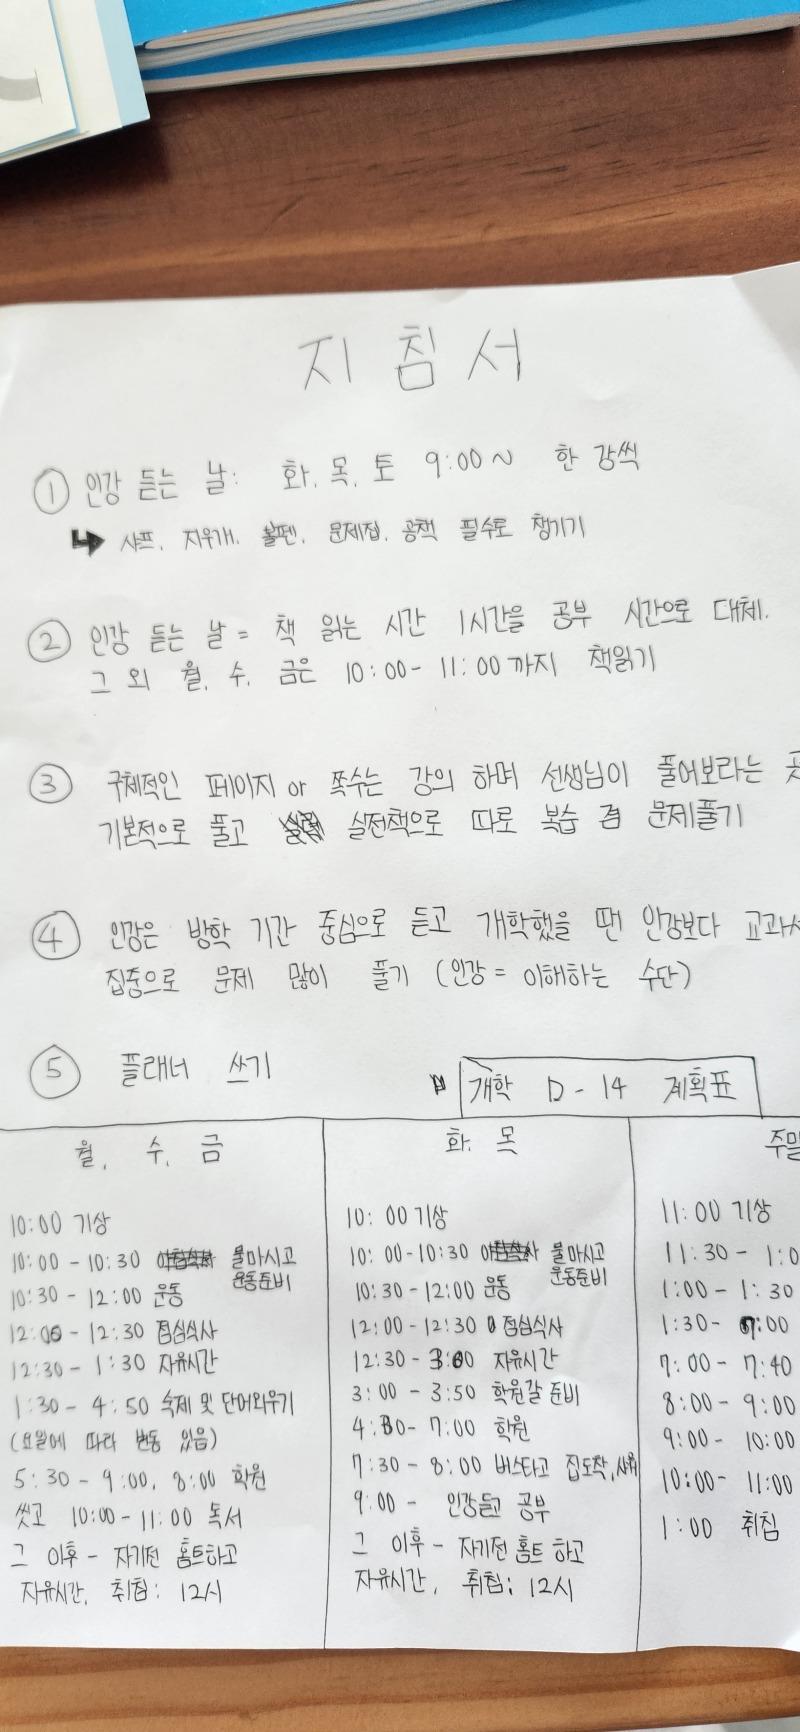 지침서
① 인강 듣는 날: 화, 목, 토 9:00~ 한 강씩
↳ 샤프, 지우개, 볼펜, 문제집, 공책 필수로 챙기기
② 인강 듣는 날 = 책 읽는 시간 1시간을 공부 시간으로 대체.
그 외 월, 수, 금은 10:00 - 11:00 까지 책읽기
③ 구체적인 페이지 or 쪽수는 강의 하며 선생님이 풀어보라는 곳
기본적으로 풀고 실전책으로 따로 복습 겸 문제풀기
④ 인강은 방학 기간 중심으로 듣고 개학했을 땐 인강보다 교과서
집중으로 문제 많이 풀기 (인강 = 이해하는 수단)
⑤ 플래너 쓰기
개학 D-14 계획표
월, 수, 금
10:00 기상
10:00 - 10:30 물마시고
운동준비
10:30 - 12:00 운동
12:00 - 12:30 점심식사
12:30 - 1:30 자유시간
1:30 - 4:50 숙제 및 단어외우기
(요일에 따라 변동 있음)
5:30 - 9:00, 8:00 학원
씻고 10:00 - 11:00 독서
그 이후 - 자기전 홈트하고
자유시간, 취침: 12시
화, 목
10:00 기상
10:00-10:30 물마시고
운동준비
10:30-12:00 운동
12:00-12:30 점심식사
12:30 - 3:00 자유시간
3:00 - 3:50 학원갈 준비
4:30- 7:00 학원
7:30 - 8:00 버스타고 집도착,
9:00 - 인강듣고 공부
그 이후 - 자기전 홈트 하고
자유시간, 취침: 12시
주말
11:00 기상
11:30 - 1:0
1:00 - 1:30
1:30 - 7:00
7:00 - 7:40
8:00 - 9:00
9:00 - 10:00
10:00 - 11:00
1:00 취침